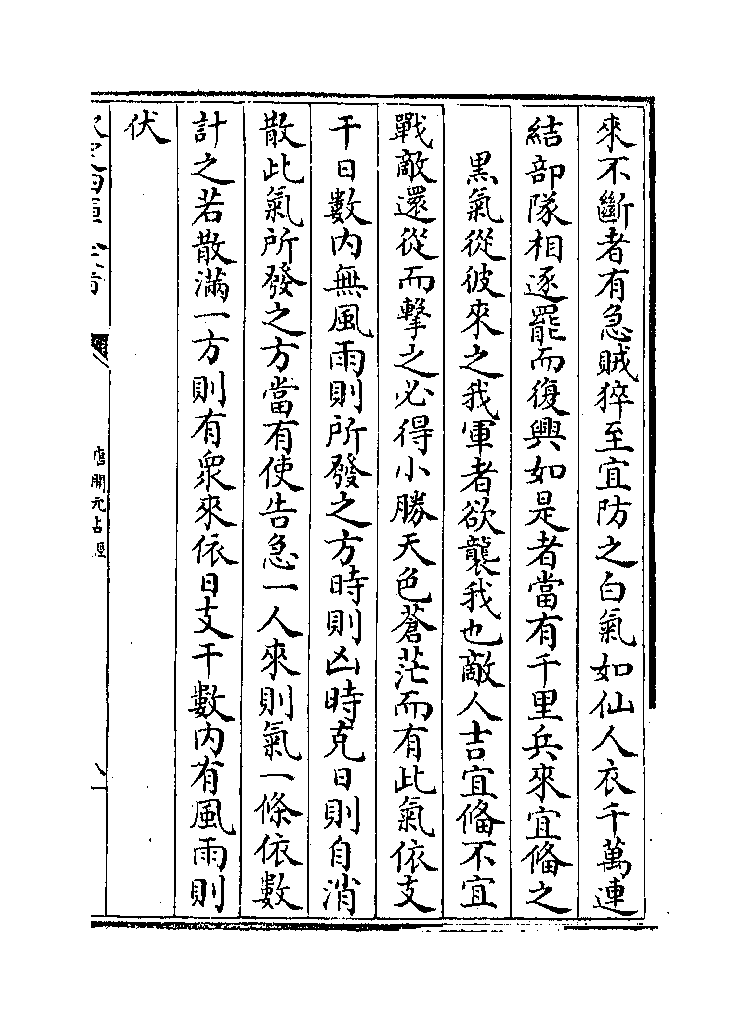 來不斷者有急賊猝至宜防之白氣如仙人衣千萬連
結部隊相逐罷而復興如是者當有千里兵來宜備之
黑氣從彼來之我軍者欲襲我也敵人吉宜備不宜
戰敵還從而擊之必得小勝天色蒼茫而有此氣依支
干日數內無風雨則所發之方時則凶時克日則自消
散此氣所發之方當有使告急一人來則氣一條依數
計之若散滿一方則有衆來依日支干數內有風雨則
伏
唐開元占經